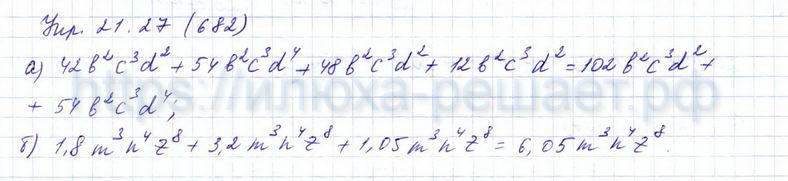 Упр. 21.27 (682)
а) 42b²c³d² + 54b²c³d⁴ + 48b²c³d² + 12b²c³d² = 102b²c³d² +
+ 54b²c³d⁴;
https://илюха-решает.рф
б) 1,8m³n⁴z⁸ + 3,2m³n⁴z⁸ + 1,05m³n⁴z⁸ = 6,05m³n⁴z⁸.